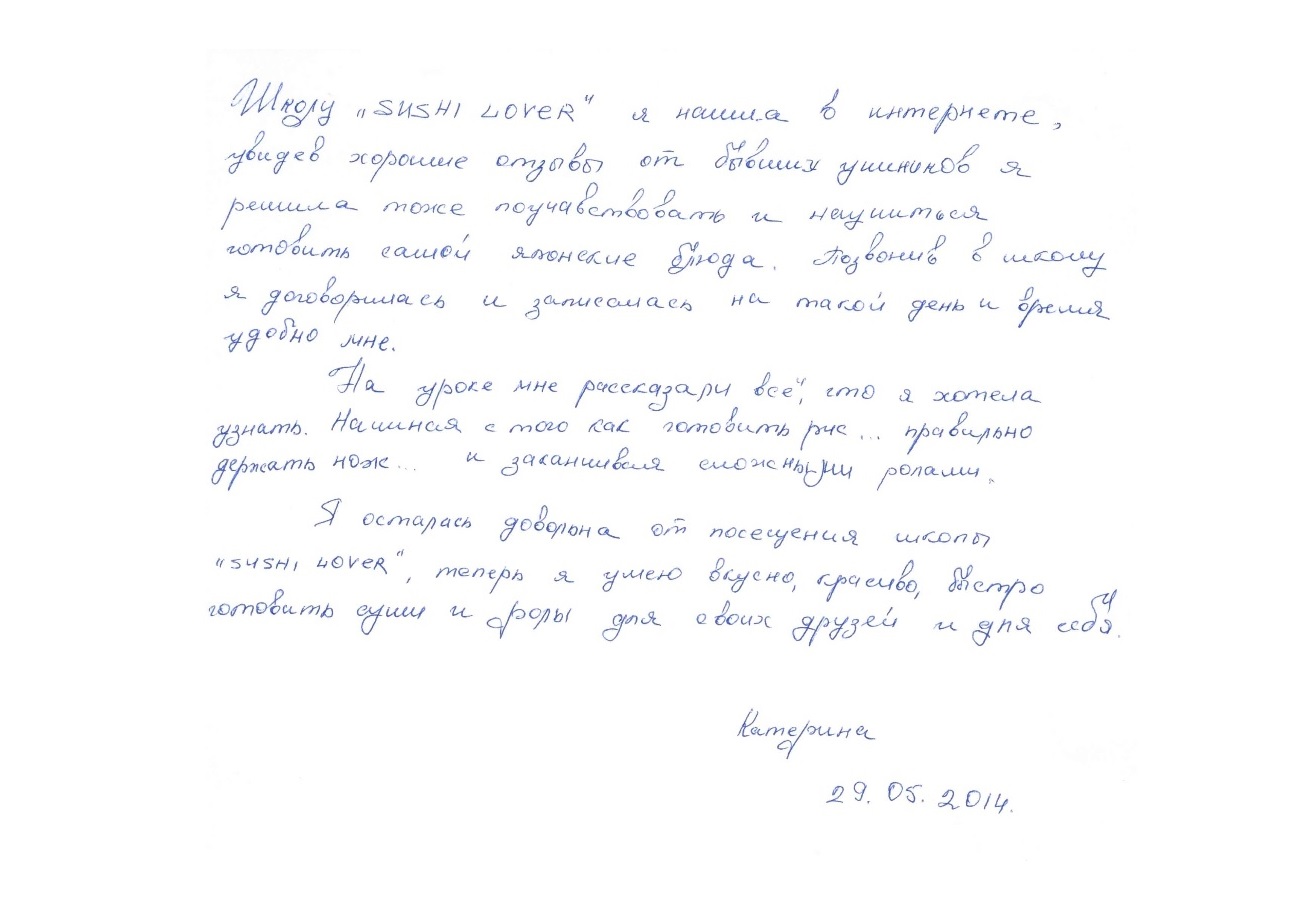 Школу „SUSHI LOVER" я нашла в интернете,
увидев хорошие отзывы от бывших учиников я
решила тоже поучавствовать и научиться
готовить самой японские блюда. Позвонив в школу
я договорилась и записалась на такой день и время
удобно мне.
На уроке мне рассказали всё, что я хотела
узнать. Начиная с того как готовить рис... правильно
держать нож... и заканчивая сложными ролами.
Я осталась довольна от посещения школы
„SUSHI LOVER", теперь я умею вкусно, красиво, быстро
готовить суши и ролы для своих друзей и для себя.
Катерина
29. 05. 2014.